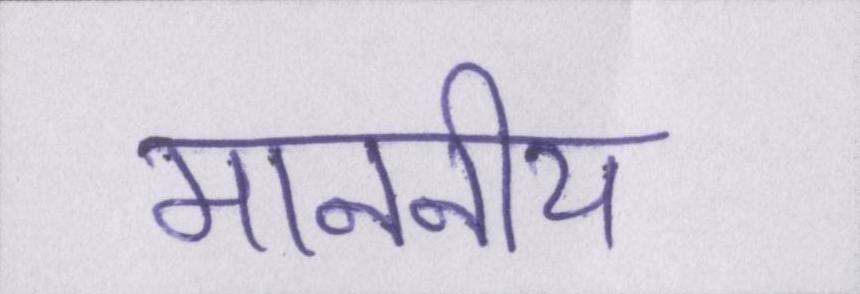 माननीय